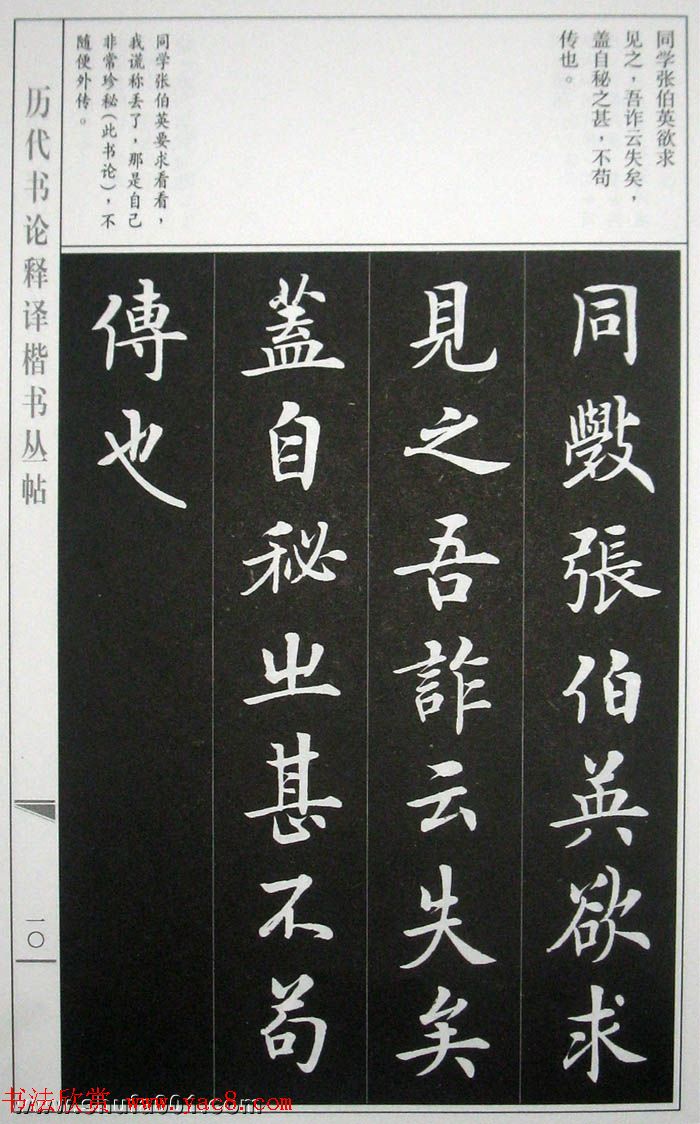 同学张伯英欲求
见之，吾诈云失矣，
盖自秘之甚，不苟
传也。
同学张伯英要求看看，
我谎称丢了，那是自己
非常珍秘（此书论），不
随便外传。
同斆張伯英欲求
見之吾詐云失矣
蓋自秘㞢甚不苟
傳也
历代书论释译楷书丛帖
一〇
书法欣赏 www.yac8.com